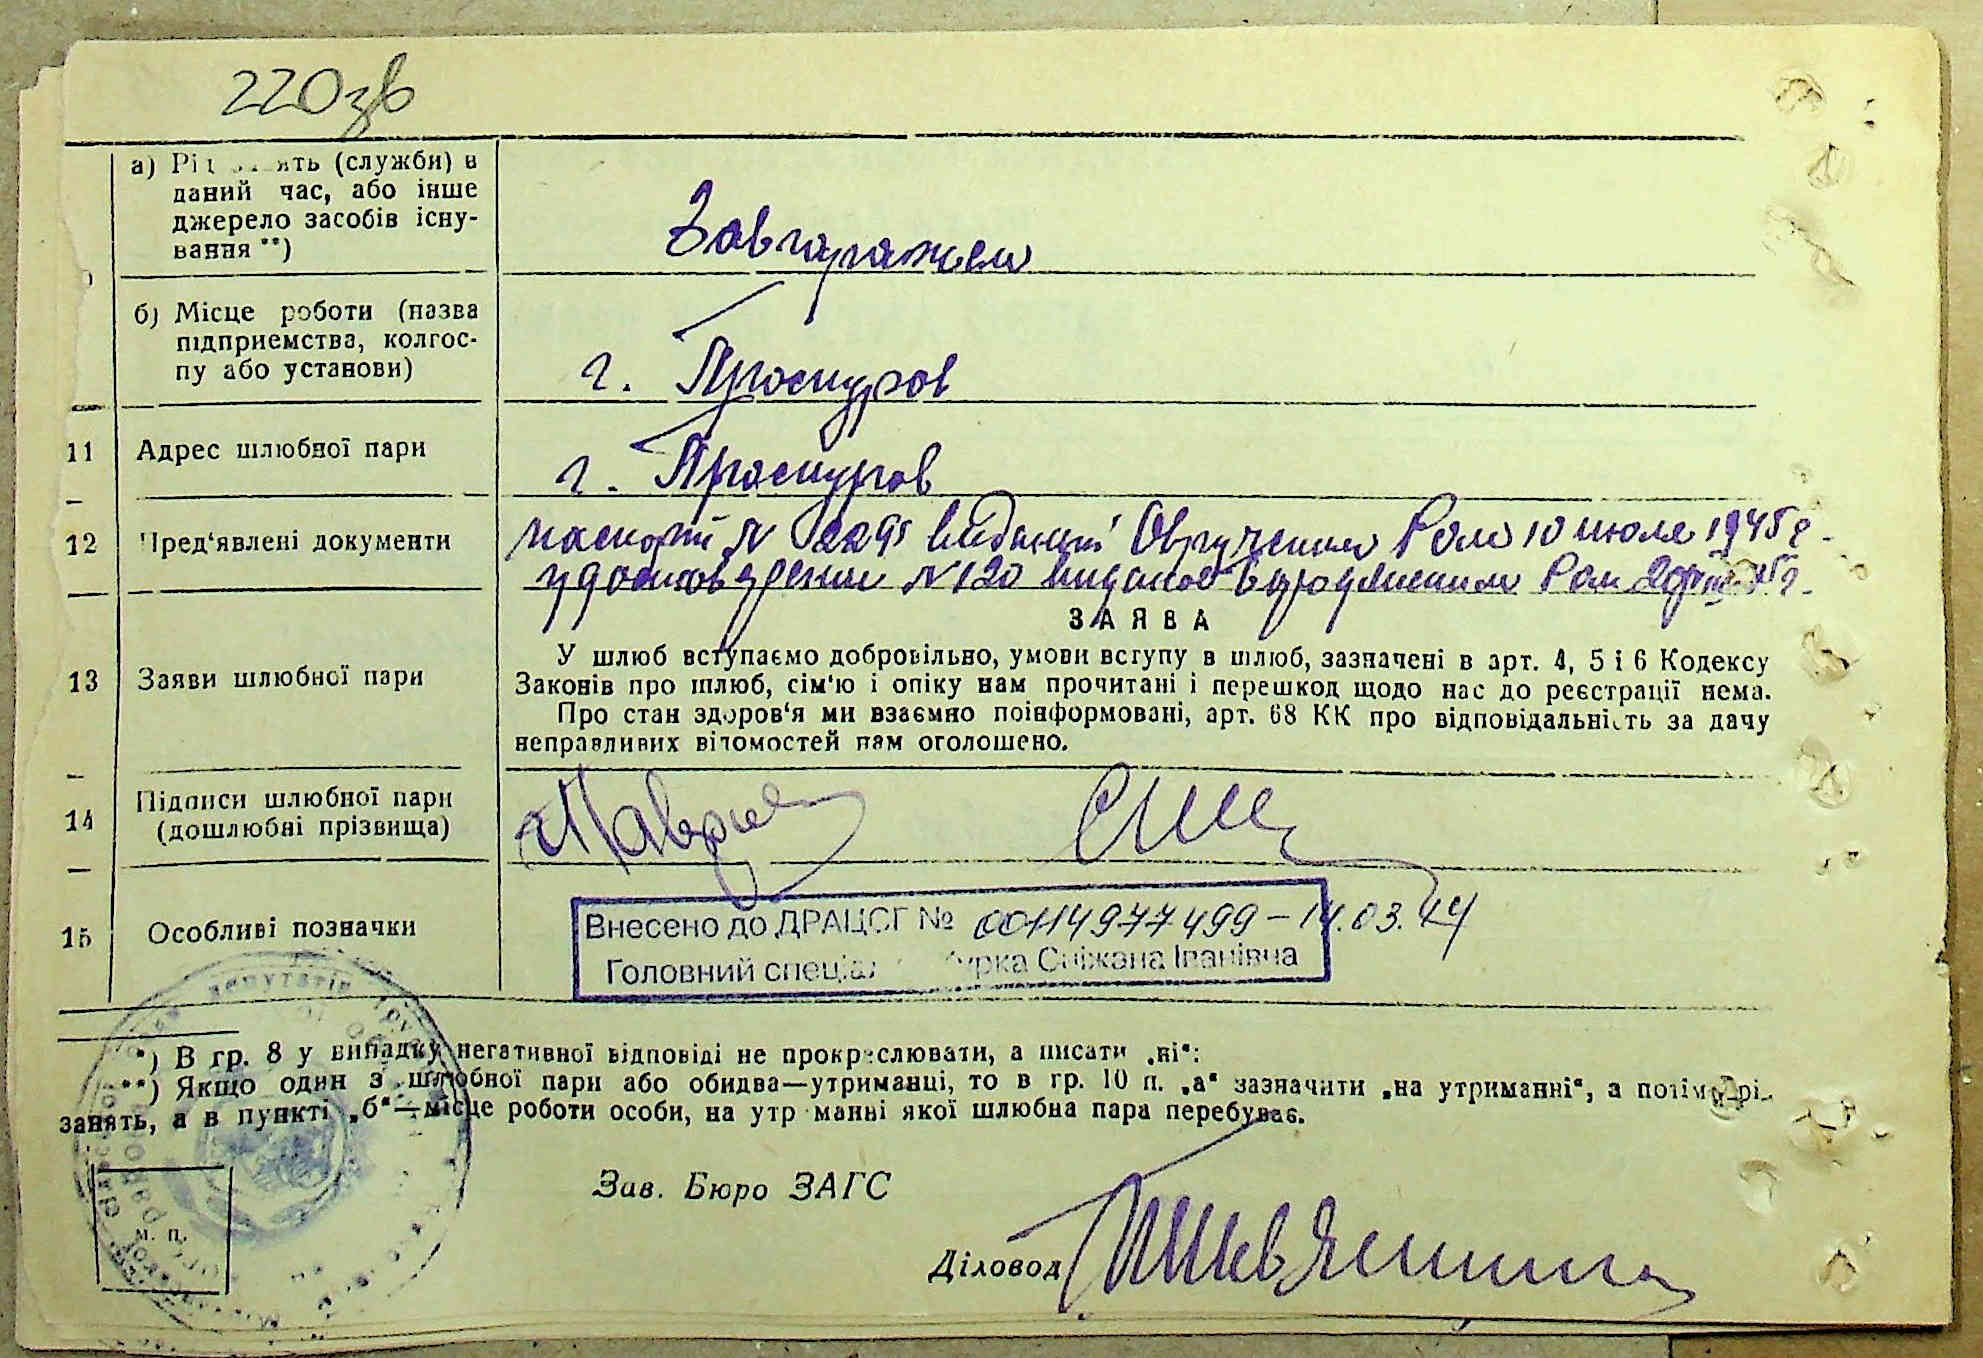 220зв
а) (служби) в
даний час, або інше
джерело засобів існу-
вання **)
Завгаражем
б) Місце роботи (назва
підприемства, колгос-
пу або установи)
г. Проскуров
11 Адрес шлюбної пари
г. Проскуров
12 Пред'явлені документи
паспорт № Овручским Ром 10 июля 1945 г.
удостоверение № 120 Ром
ЗАЯВА
13 Заяви шлюбної пари
У шлюб вступаємо добровільно, умови вступу в шлюб, зазначені в арт. 4, 5 і 6 Кодексу
Законів про шлюб, сім'ю і опіку нам прочитані і перешкод щодо нас до реєстрації нема.
Про стан здоров'я ми взаємно поінформовані, арт. 68 КК про відповідальність за дачу
неправливих відомостей нам оголошено.
14 Підписи шлюбної пари
(дошлюбні прізвища)
15 Особливі позначки
Внесено до ДРАЦСГ № 00114977499 – 14.03.
Головний Сніжана Іванівна
*) В гр. 8 у випадку негативної відповіді не прокреслювати, а писати „ні“:
**) Якщо один з шлюбної пари або обидва—утриманці, то в гр. 10 п. „а“ зазначити „на утриманні“, а потім рі-
занять, а в пункті „б“—місце роботи особи, на утр манні якої шлюбна пара перебуває.
Зав. Бюро ЗАГС
м. п.
Діловод